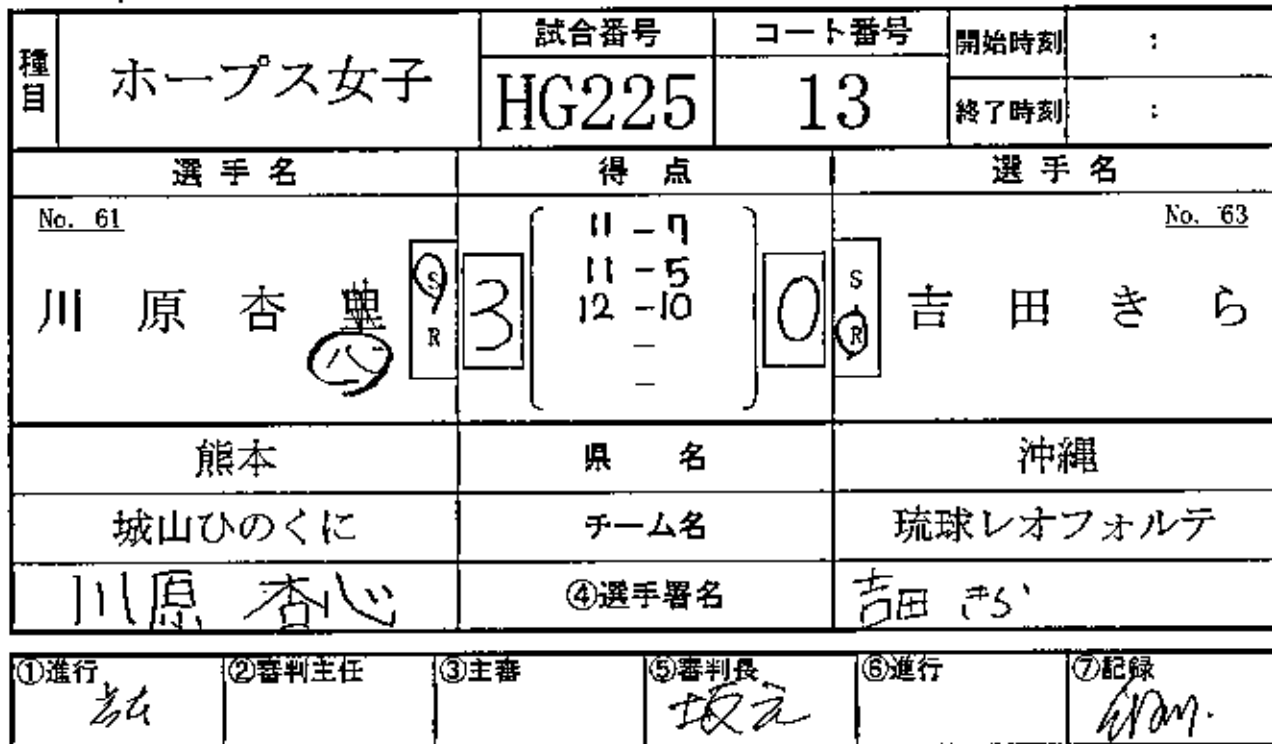 種目 ホープス女子 試合番号 HG225 コート番号 13 開始時刻 :
終了時刻 :
選手名 得点 選手名
No. 61 No. 63
川原杏 心 S R 3 0 S R 吉田きら
11 - 7
11 - 5
12 - 10
-
-
熊本 県名 沖縄
城山ひのくに チーム名 琉球レオフォルテ
川原 杏心 ④選手署名 吉田 きら
①進行 ②審判主任 ③主審 ⑤審判長 坂元 ⑥進行 ⑦記録